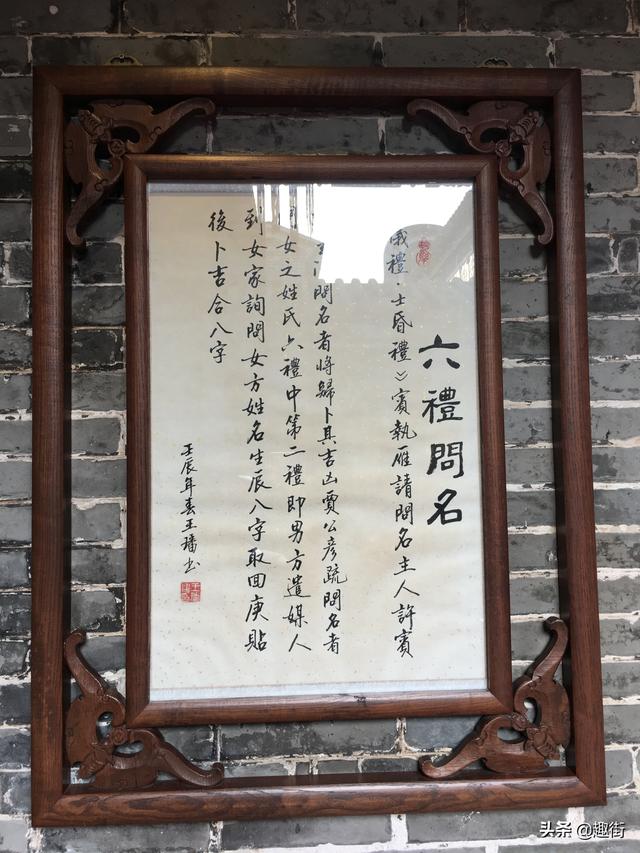 六禮問名
禮·士昏禮》賓執雁請問名主人許賓
問名者將歸卜其吉凶賈公彥疏問名者
女之姓氏六禮中第二禮即男方遣媒人
到女家詢問女方姓名生辰八字取回庚貼
後卜吉合八字
壬辰年春王璠书
头条 @趣街